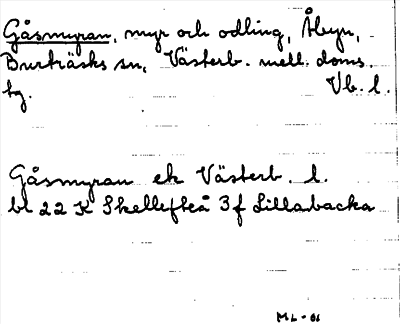 Gåsmyran, myr och odling, Åbyn,
Burträsks sn, Västerb. mell. doms.
tg. Vb. l.
Gåsmyran ek Västerb. l.
bl 22 K Skellefteå 3 f Lillabacka
ML-01